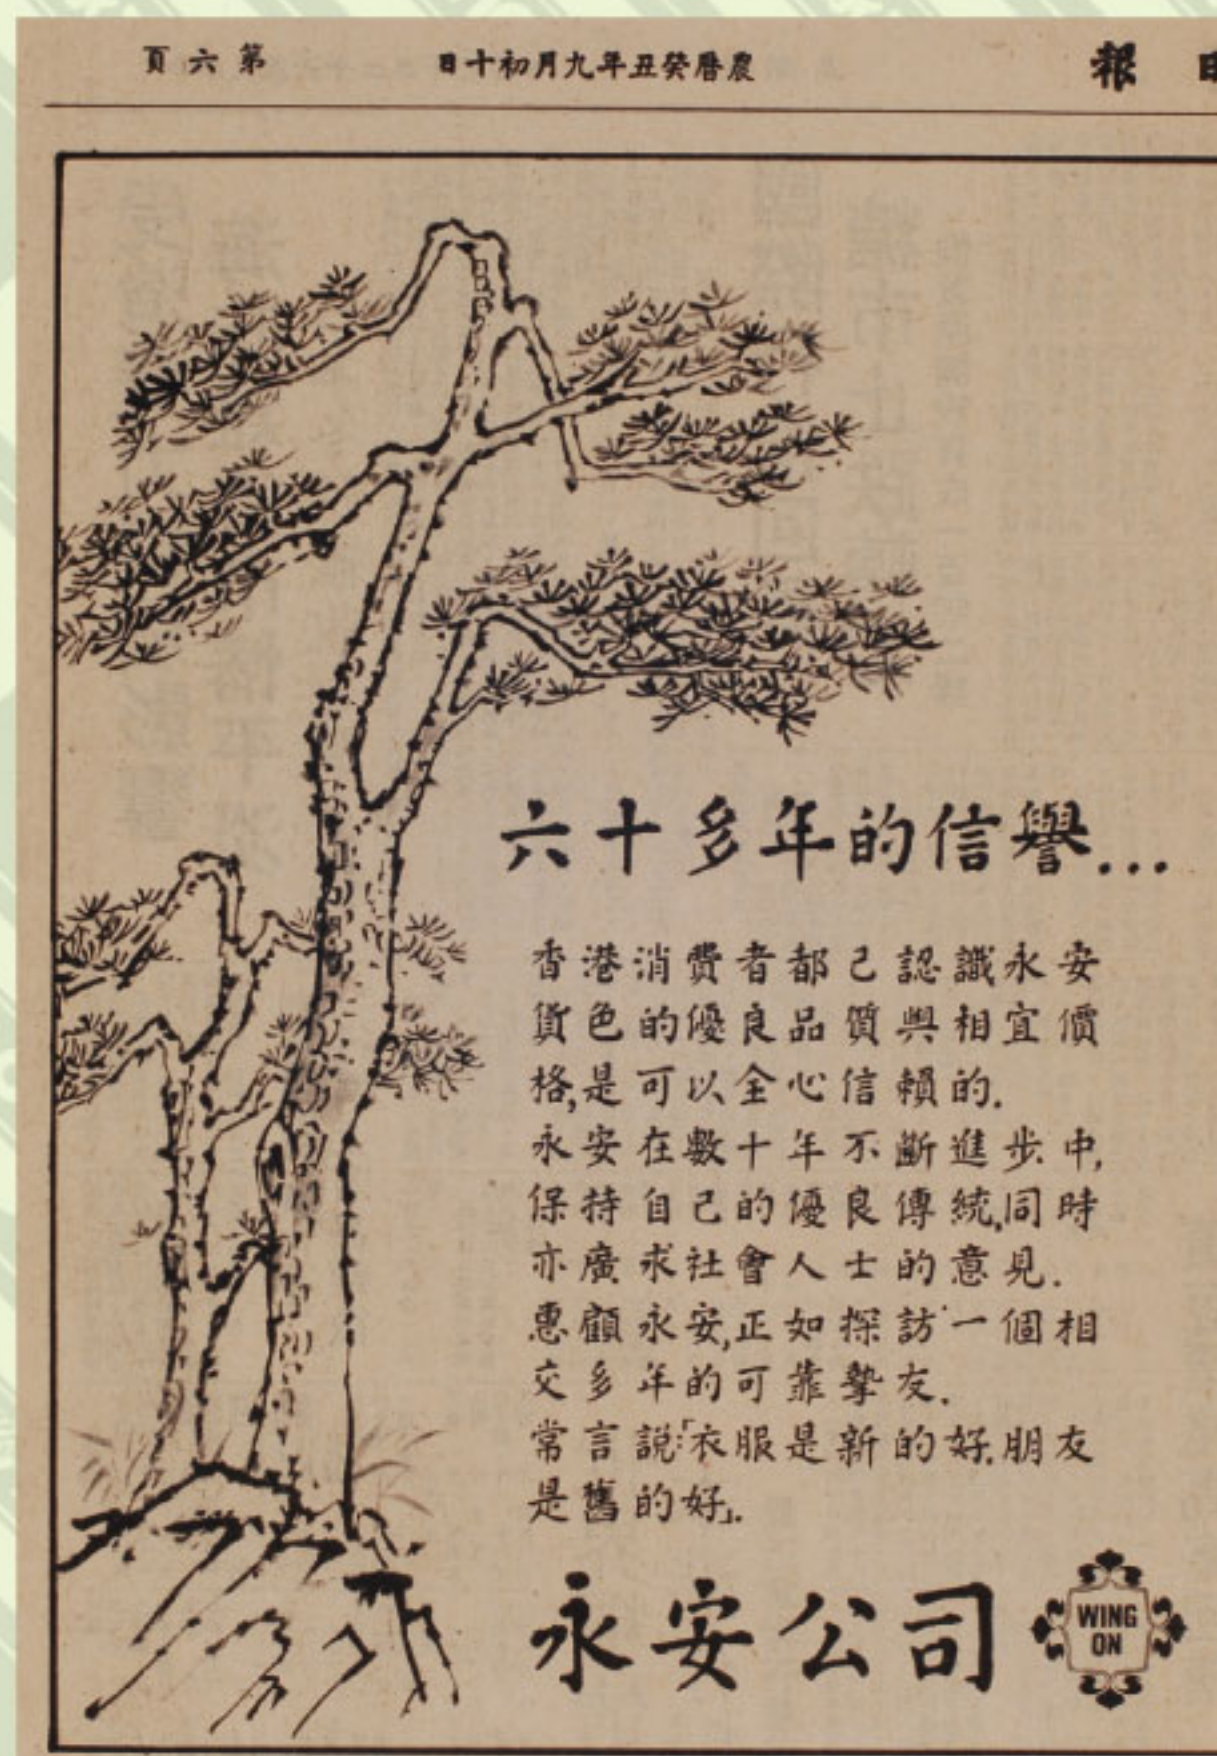 日報
農曆癸丑年九月初十日
第六頁
六十多年的信譽...
香港消費者都己認識永安
貨色的優良品質與相宜價
格,是可以全心信賴的.
永安在數十年不斷進步中,
保持自己的優良傳統,同時
亦廣求社會人士的意見.
惠顧永安,正如探訪一個相
交多年的可靠摯友.
常言說:「衣服是新的好.朋友
是舊的好」.
永安公司
WING
ON